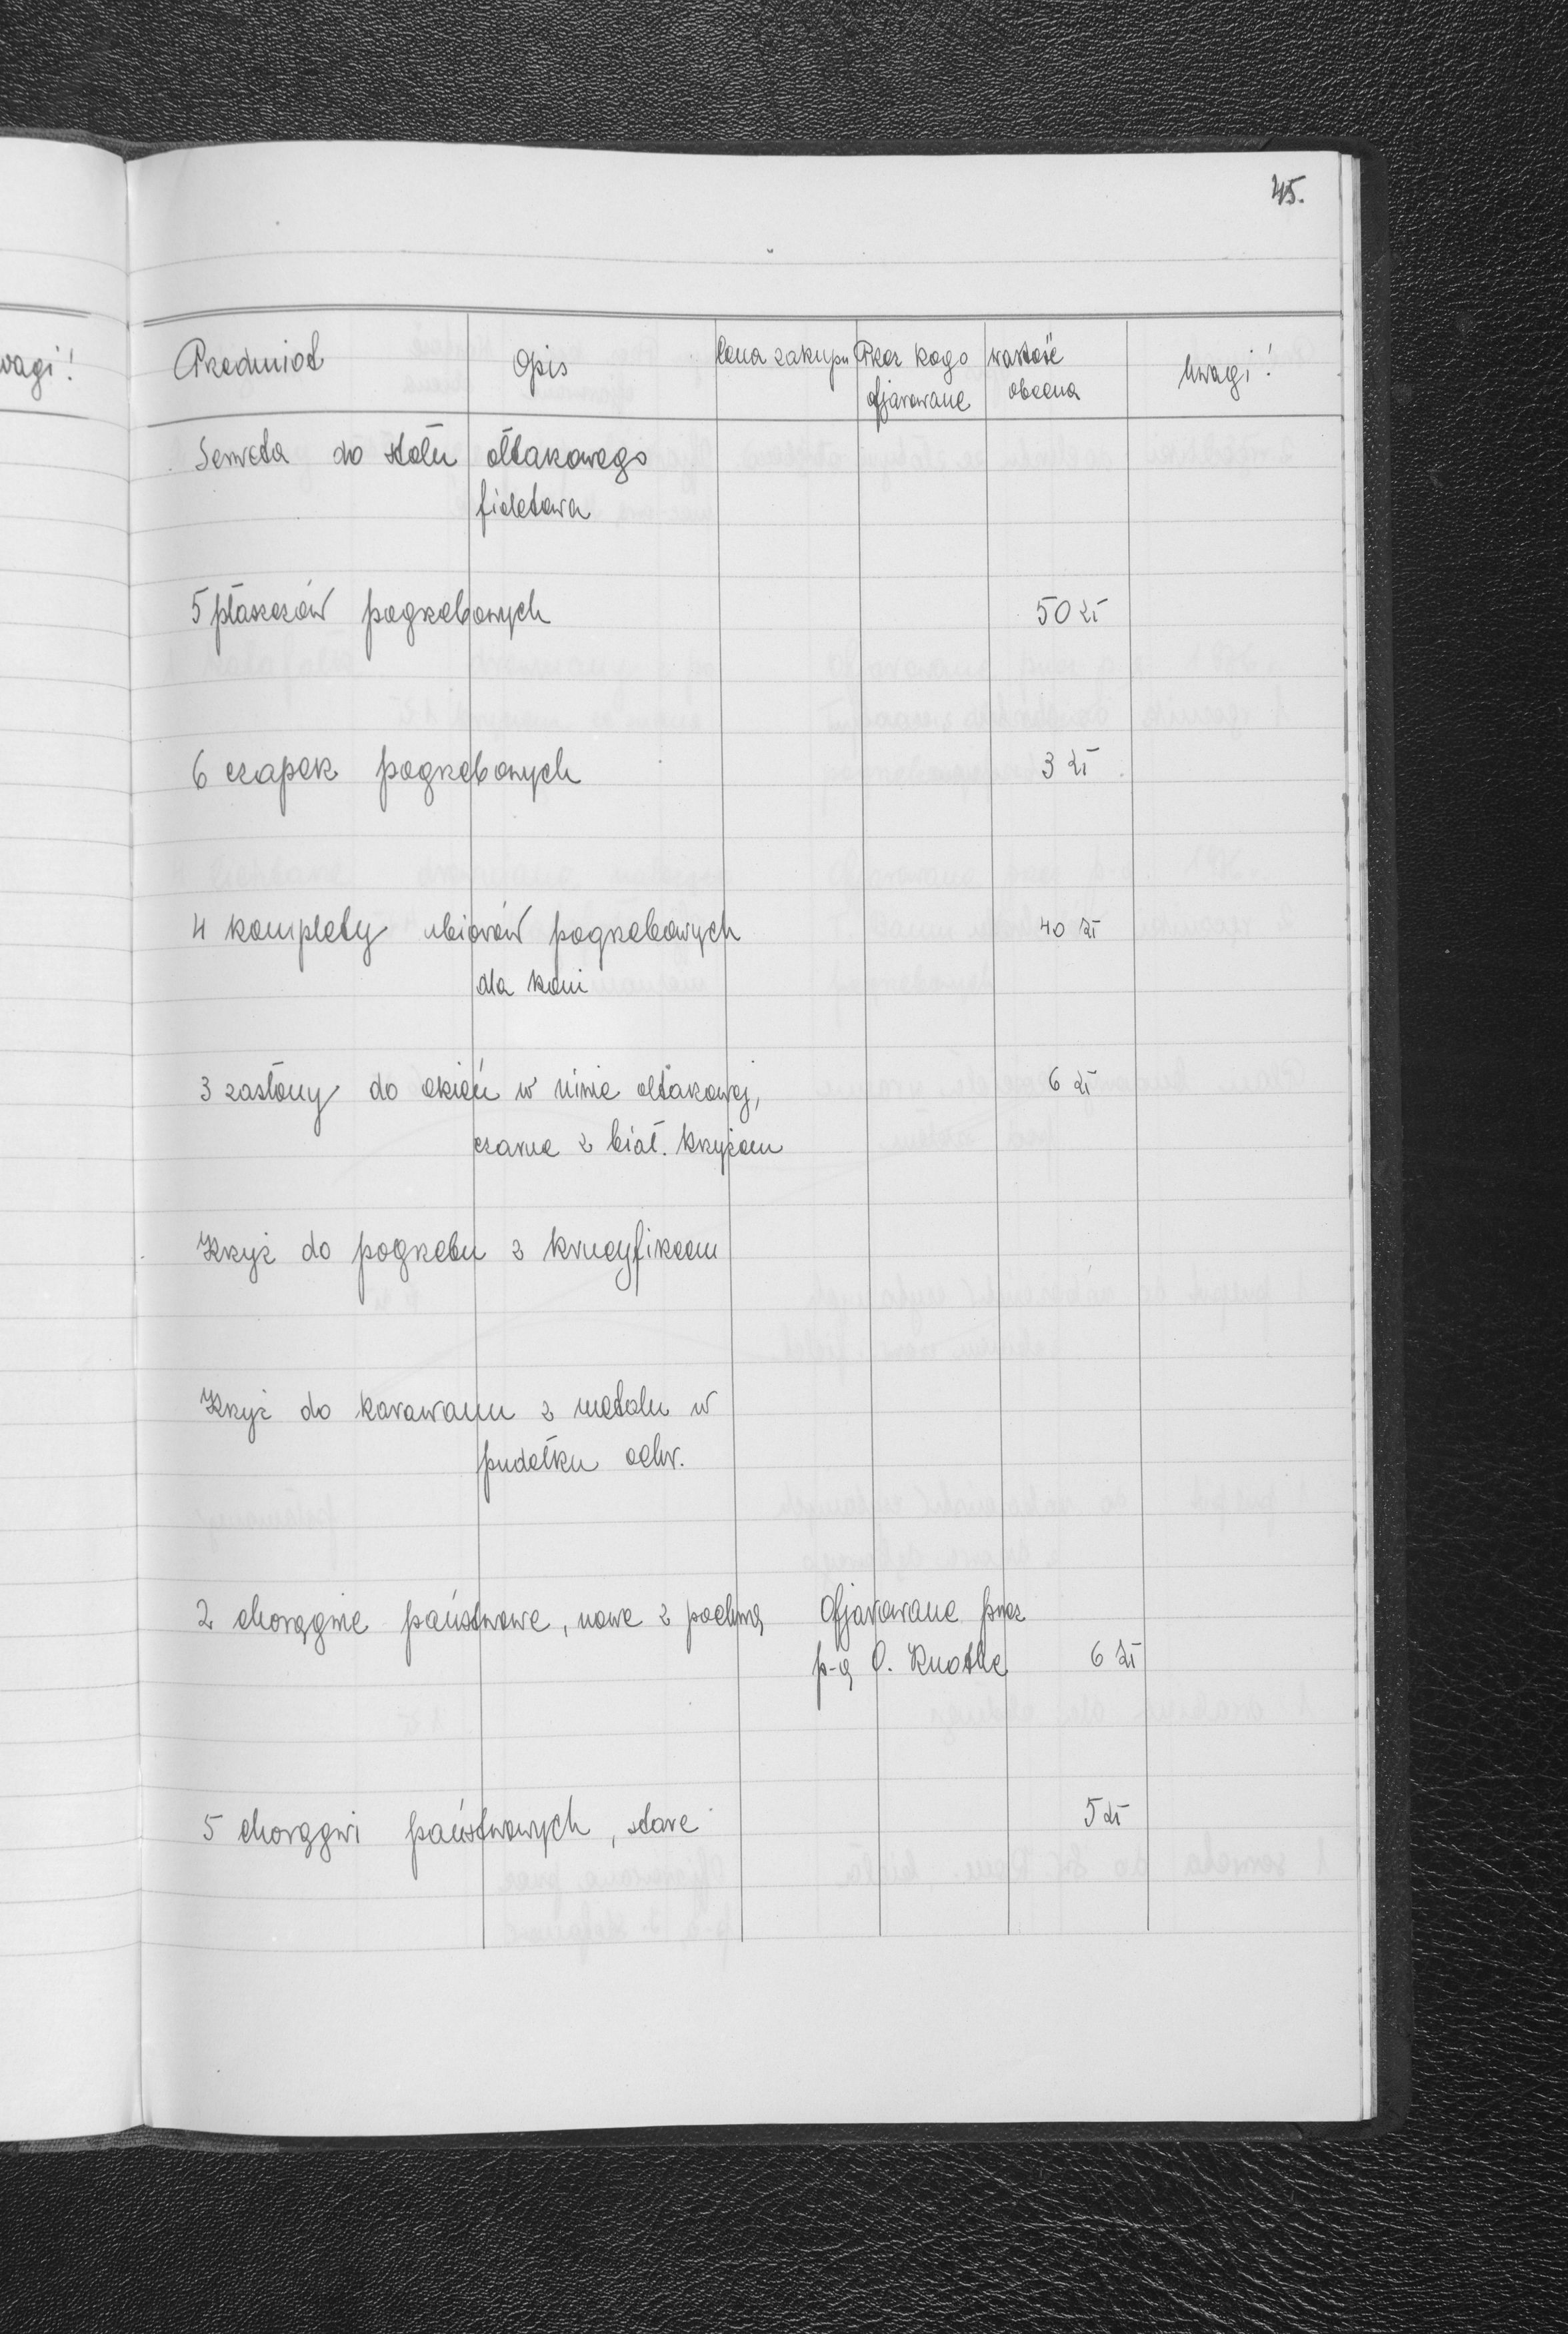 45.
wagi!
Przedmiot Opis Cena zakupu Przez kogo ofjarowane wartość obecna Uwagi!
Serweta do stołu ołtarzowego
fioletowa
5 płaszczów pogrzebowych 50 zł
6 czapek pogrzebowych 3 zł
4 komplety ubiorów pogrzebowych 40 zł
dla koni
3 zasłony do okien w niszie ołtarzowej, 6 zł
czarne z biał. krzyżem
Krzyż do pogrzebu z krucyfiksem
Krzyż do karawanu z metalu w
pudełku ochr.
2 chorągwie państwowe, nowe z pochwą Ofjarowane przez
p-ą O. Knothe 6 zł
5 chorągwi państwowych, stare 5 zł